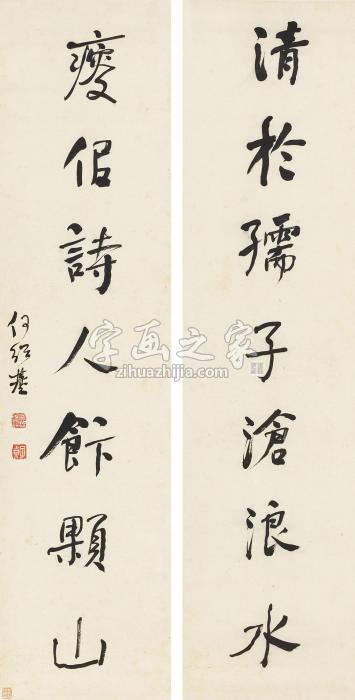 清於孺子滄浪水
瘦侣詩人飯顆山
何紹基
字画之家
zihuazhijia.com